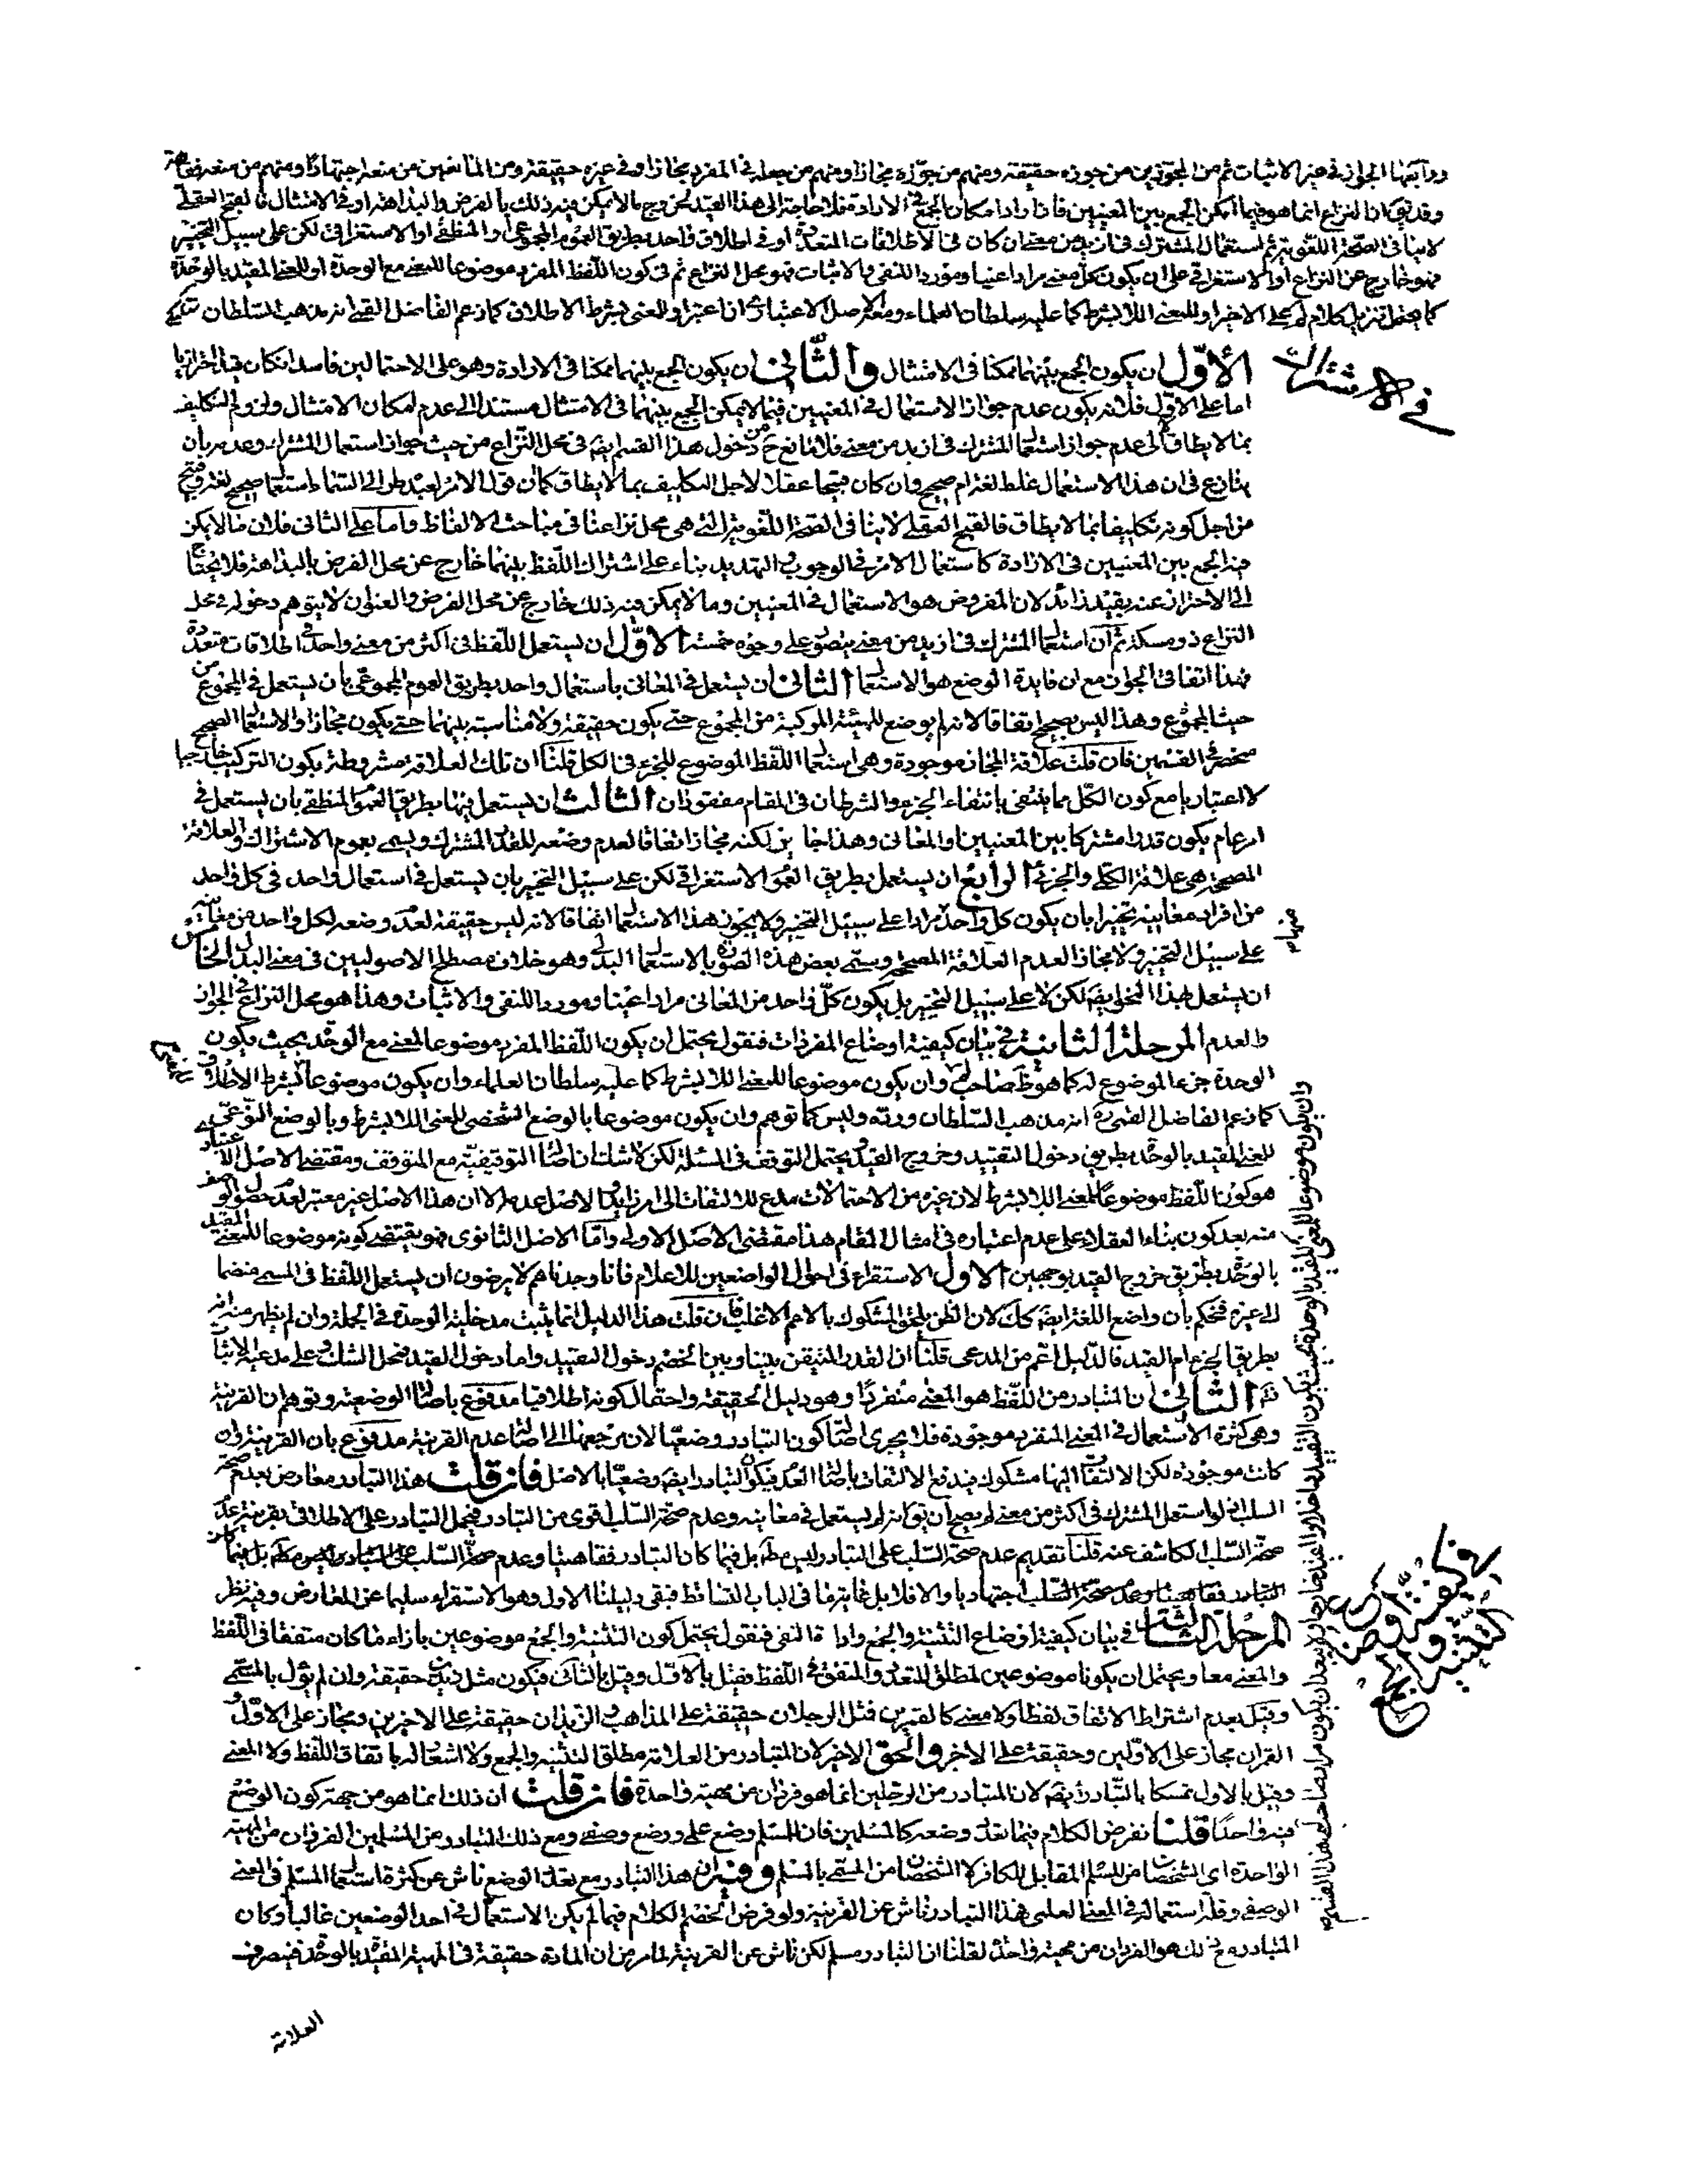 ورابعها الجواز في غير الاثبات ثم من المجوزين من جوزه حقيقة ومنهم من جوزه مجازا ومنهم من جعله في المفرد مجازا وفي غيره حقيقة ومن المانعين من منعه اجتهادا ومنهم من منعه فقاهة
وقد يق ان النزاع انما هو فيما امكن الجمع بين المعنيين فان ارادا مكان الجمع في الارادة فلا حاجة الى هذا القيد لخروج ما لا يمكن فيه ذلك بالفرض والبداهة او في الامتثال فالقبح العقلي
لا ينافي الصحة اللغوية ثم استعمال المشترك في ازيد من معنى ان كان في الاطلاقات المتعددة او في اطلاق واحد بطريق العموم المجموعي او المنطقي او الاستغراقي لكن على سبيل التخيير
فهو خارج عن النزاع او الاستغراقي على ان يكون كل معنى مرادا عينا وموردا للنفي والاثبات فهو محل النزاع ثم في كون اللفظ المفرد موضوعا للمعنى مع الوحدة او للمعنى المقيد بالوحدة
كما يحتمل تنزيل كلام لم على الاخير او للمعنى اللابشرط كما عليه سلطان العلماء ومعه الاصل الاعتباري ان اعتبر او للمعنى بشرط الاطلاق كما زعم الفاضل القمي انه مذهب السلطان
في الاشتراك
الاول ان يكون الجمع بينهما ممكنا في الامتثال والثاني ان يكون الجمع بينهما ممكنا في الارادة وهو على الاحتمالين فاسد ان كان قيدا احترازيا
اما على الاول فلانه يكون عدم جواز الاستعمال في المعنيين فيما لا يمكن الجمع بينهما في الامتثال مستندا الى عدم امكان الامتثال ولزوم التكليف
بما لا يطاق لا الى عدم جواز استعمال المشترك في ازيد من معنى فلا مانع ح من دخول هذا القسم ايضا في محل النزاع من حيث جواز استعمال المشترك وعدمه بان
يتنازع في ان هذا الاستعمال غلط لغة ام صحيح وان كان قبيحا عقلا لاجل التكليف بما لا يطاق كما ان قول الامر لعبده طر الى السماء استعمال صحيح لغة وقبيح
من اجل كونه تكليفا بما لا يطاق فالقبح العقلي لا ينافي الصحة اللغوية التي هي محل نزاعنا في مباحث الالفاظ واما على الثاني فلان ما لا يمكن
فيه الجمع بين المعنيين في الارادة كاستعمال الامر في الوجوب والتهديد بناء على اشتراك اللفظ بينهما خارج عن محل الفرض بالبداهة فلا يحتاج
الى الاحتراز عنه بقيد زائد لان المفروض هو الاستعمال في المعنيين وما لا يمكن فيه ذلك خارج عن محل الفرض والعنوان لا يتوهم دخوله في محل
النزاع ذو مسكة ثم ان استعمال المشترك في ازيد من معنى يتصور على وجوه خمسة الاول ان يستعمل اللفظ في اكثر من معنى واحد في اطلاقات متعددة
فهذا اتفاقي الجواز مع ان فايدة الوضع هو الاستعمال الثاني ان يستعمل في المعاني باستعمال واحد بطريق العموم المجموعي بان يستعمل في المجموع من
حيث المجموع وهذا ليس بصحيح اتفاقا لانه لم يوضع للهيئة المركبة من المجموع حتى يكون حقيقة ولا مناسبة بينهما حتى يكون مجازا والاستعمال الصحيح
منحصر في القسمين فان قلت علاقة المجاز موجودة وهي استعمال اللفظ الموضوع للجزء في الكل قلنا ان تلك العلاقة مشروطة بكون التركيب خارجيا
لا اعتباريا مع كون الكل مما ينتفي بانتفاء الجزء والشرطان في المقام مفقودان الثالث ان يستعمل فيها بطريق العموم المنطقي بان يستعمل في
امر عام يكون قدرا مشتركا بين المعنيين او المعاني وهذا جايز لكنه مجاز اتفاقا لعدم وضعه للقدر المشترك ويسمى بعموم الاشتراك والعلاقة
المصححة هي علاقة الكلي والجزئي الرابع ان يستعمل بطريق العموم الاستغراقي لكن على سبيل التخيير بان يستعمل في استعمال واحد في كل واحد
من افراد معانيه تخييرا بان يكون كل واحد مرادا على سبيل التخيير ولا يجوز هذا الاستعمال اتفاقا لانه ليس حقيقة لعدم وضعه لكل واحد من معانيه
على سبيل التخيير ولا مجازا لعدم العلاقة المصححة ويسمى بعض هذه الصورة بالاستعمال البدلي وهو خلاف مصطلح الاصوليين في معنى البدل الخامس
ان يستعمل بهذا النحو ايضا لكن لا على سبيل التخيير بل يكون كل واحد من المعاني مرادا عينا وموردا للنفي والاثبات وهذا هو محل النزاع في الجواز
والعدم المرحلة الثانية في بيان كيفية اوضاع المفردات فنقول يحتمل ان يكون اللفظ المفرد موضوعا للمعنى مع الوحدة بحيث يكون
الوحدة جزءا لموضوع له كما هو ظ صاحب لم وان يكون موضوعا للمعنى اللابشرط كما عليه سلطان العلماء وان يكون موضوعا بشرط الاطلاق
كما زعم الفاضل القمي ره انه مذهب السلطان ورده وليس كما توهم وان يكون موضوعا بالوضع الشخصي للمعنى اللابشرط وبالوضع النوعي
للمعنى المقيد بالوحدة بطريق دخول التقييد وخروج القيد ويحتمل التوقف في المسئلة لكن لا شك ان اصالة التوقيفية مع المتوقف ومقتضى الاصل الاعتباري
هو كون اللفظ موضوعا للمعنى اللابشرط لان غيره من الاحتمالات مدع للالتفات الى امر زايد والاصل عدمه الا ان هذا الاصل غير معتبر لعدم حصول الوصف
منه بعد كون بناء العقلاء على عدم اعتباره في امثال المقام هذا مقتضى الاصل الاولي واما الاصل الثانوي فهو يقتضي كونه موضوعا للمعنى المقيد
بالوحدة بطريق خروج القيد بوجهين الاول الاستقراء في احوال الواضعين للاعلام فانا وجدناهم لا يرضون ان يستعمل اللفظ في المسمى منضما
الى غيره فنحكم بان واضع اللغة ايضا كك لان الظن يلحق المشكوك بالاعم الاغلب فان قلت هذا الدليل انما يثبت مدخلية الوحدة في الجملة وان لم يظهر منه انه
بطريق الجزء ام القيد فالدليل اعم من المدعى قلنا ان القدر المتيقن بيننا وبين الخصم دخول التقييد واما دخول القيد فمحل الشك وعلى مدعيه الاثبات
الثاني ان المتبادر من اللفظ هو المعنى منفردا وهو دليل الحقيقة واحتمال كونه اطلاقيا مدفوع باصالة الوضعية وتوهم ان القرينة
وهي كثرة الاستعمال في المعنى المنفرد موجودة فلا يجرى اصالة كون التبادر وضعيا لان مرجعها الى اصالة عدم القرينة مدفوع بان القرينة وان
كانت موجودة لكن الالتفات اليها مشكوك فيدفع الالتفات باصالة العدم فيكون التبادر ايضا وضعيا بالاصل فان قلت هذا التبادر معارض بعدم صحة
السلب اذ لو استعمل المشترك في اكثر من معنى لم يصح ان يق انه لم يستعمل في معانيه وعدم صحة السلب اقوى من التبادر فيحمل التبادر على الاطلاقي بقرينة عدم
صحة السلب الكاشف عنه قلنا تقديم عدم صحة السلب على التبادر ليس مط بل فيما كان التبادر فقاهتيا
التبادر فقاهتيا وعدم صحة السلب اجتهاديا والا فلا بل غايتها في الباب التساقط فبقي دليلنا الاول وهو الاستقراء سليما عن المعارض وفيه نظر
المرحلة الثالثة في بيان كيفية اوضاع التثنية والجمع فنقول يحتمل كون التثنية والجمع موضوعين بازاء ما كان متفقا في اللفظ
والمعنى معا ويحتمل ان يكونا موضوعين لمطلق المتعدد والمتفق في اللفظ فقيل بالاول وقيل بالثاني فيكون مثل زيدين حقيقة وان لم يؤل بالمسمى
وقيل بعدم اشتراط الاتفاق لفظا ولا معنى كالقمرين فمثل الرجلان حقيقة على المذاهب والزيدان حقيقة على الاخيرين ومجاز على الاول
القمران مجاز على الاولين وحقيقة على الاخر والحق الاخير لان المتبادر من العلامة مطلق التثنية والجمع ولا اشعار له باتفاق اللفظ ولا المعنى
وقيل بالاول تمسكا بالتبادر ايضا لان المتبادر من الرجلين انما هو فردان من مهية واحدة فان قلت ان ذلك انما هو من جهة كون الوضع
فيه واحدا قلنا نفرض الكلام فيما تعدد وضعه كالمسلمين فان للمسلم وضع علمي ووضع وصفي ومع ذلك المتبادر من المسلمين الفردان من المهية
الواحدة اي الشخصان من المسلم المقابل للكافر لا الشخصان من المسمى بالمسلم وفيه ان هذا التبادر مع تعدد الوضع ناش عن كثرة استعمال المسلم في المعنى
الوصفي وقلة استعماله في المعنى العلمي فهذا التبادر ناش عن القرينة ولو فرض الخصم الكلام فيما لم يكن الاستعمال في احد الوضعين غالبا وكان
المتبادر مع ذلك هو الفردان من مهية واحدة لقلنا ان التبادر مسلم لكن ناش عن القرينة لما مر من ان المادة حقيقة في المهية المقيدة بالوحدة فينصرف
العلامة